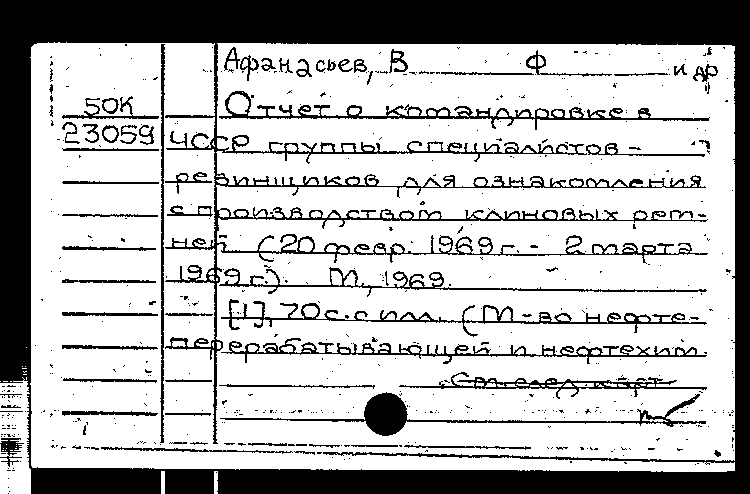 Афанасьев, В Ф и др
50К
Отчет о командировке в
23059
ЧССР группы специалистов-
резинщиков для ознакомления
с производством клиновых рем-
ней (20 февр. 1969 г. - 2 марта
1969 г.). М., 1969.
[1], 70 с. с илл. (М-во нефте-
перерабатывающей и нефтехим.
См. след. карт